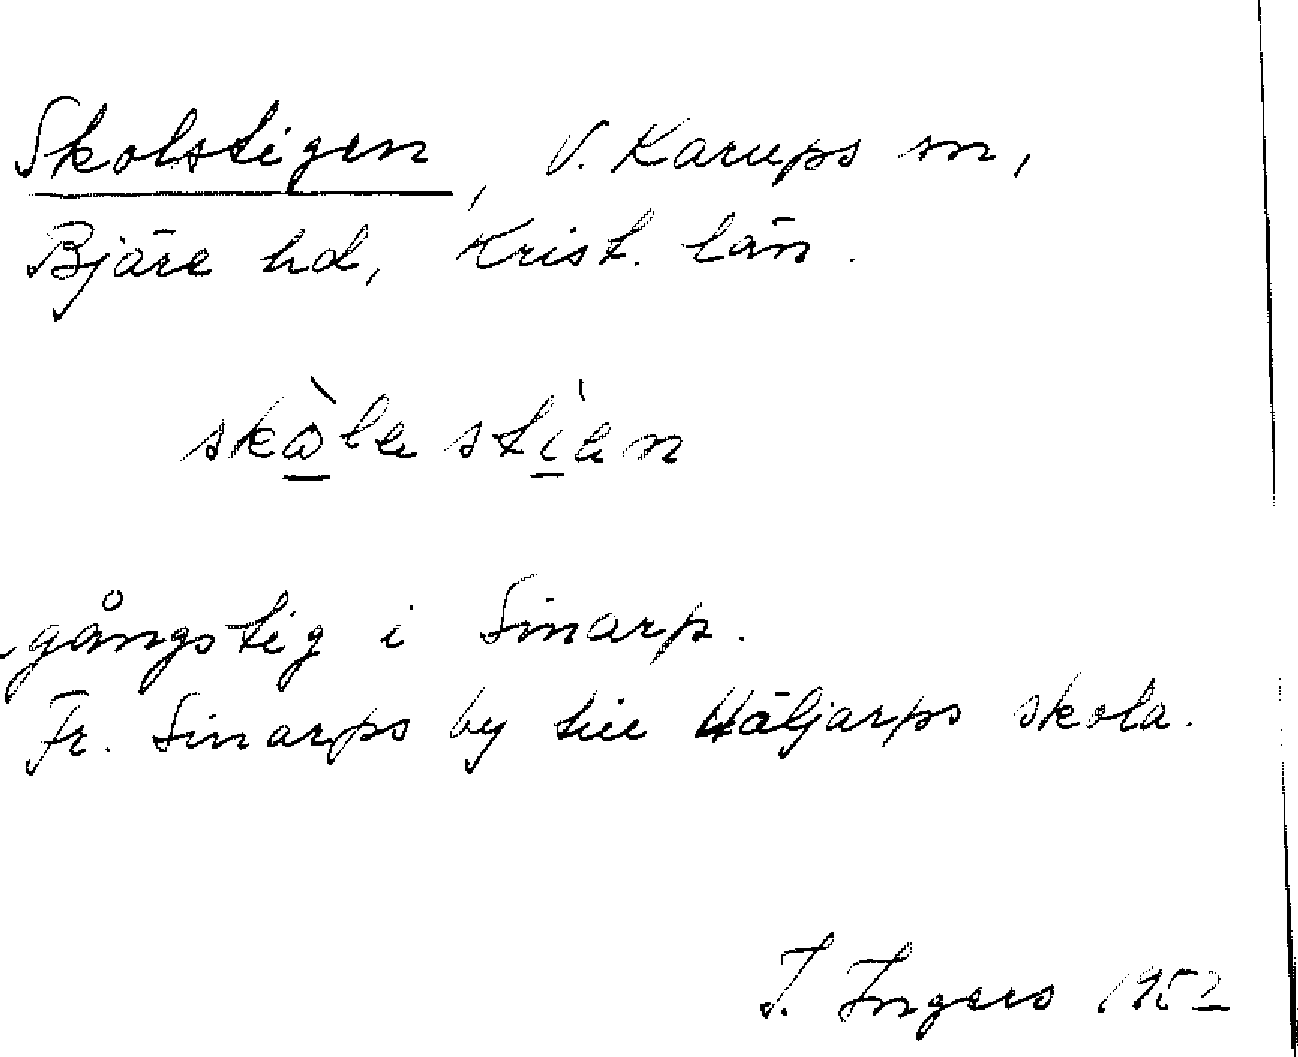 Skolstigen, V. Karups sn,
Bjäre hd, Krist. län.
skòle stìen
gångstig i Sinarp.
Fr. Sinarps by till Häljarps skola.
I. Ingers 1952